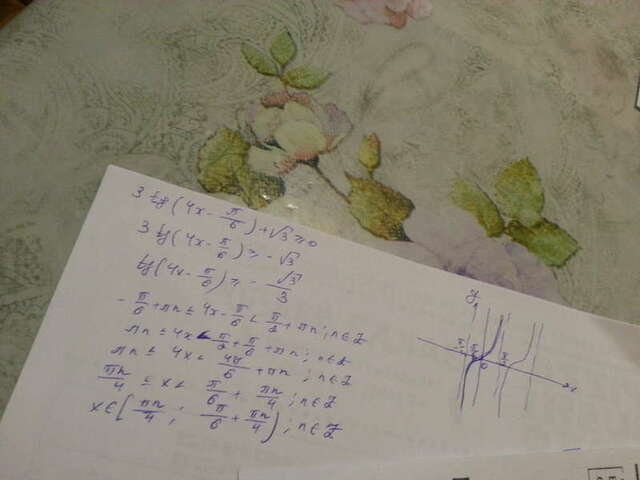 3 tg(4x - π/6) + √3 ≥ 0
3 tg(4x - π/6) ≥ - √3
tg(4x - π/6) ≥ - √3/3
- π/6 + πn ≤ 4x - π/6 < π/2 + πn; n∈Z
πn ≤ 4x < π/2 + π/6 + πn; n∈Z
πn ≤ 4x < 4π/6 + πn; n∈Z
πn/4 ≤ x < π/6 + πn/4; n∈Z
x∈[πn/4; π/6 + πn/4); n∈Z
y
0
x